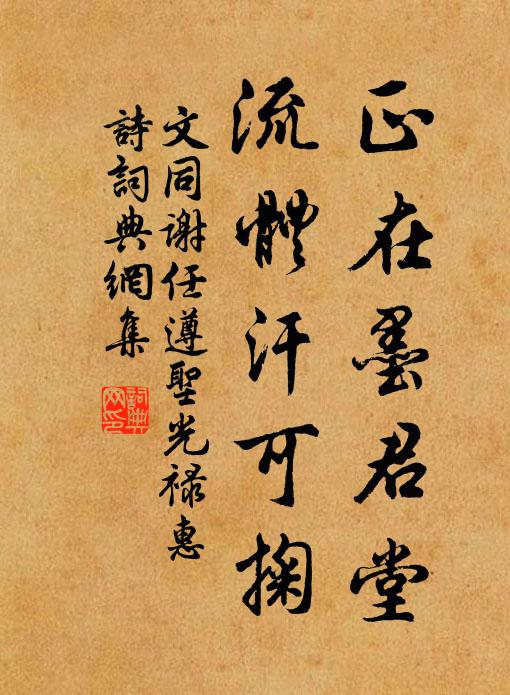 正在墨君堂
流體汗可掬
文同謝任遵聖光祿惠
詩詞典網集
詞典网印